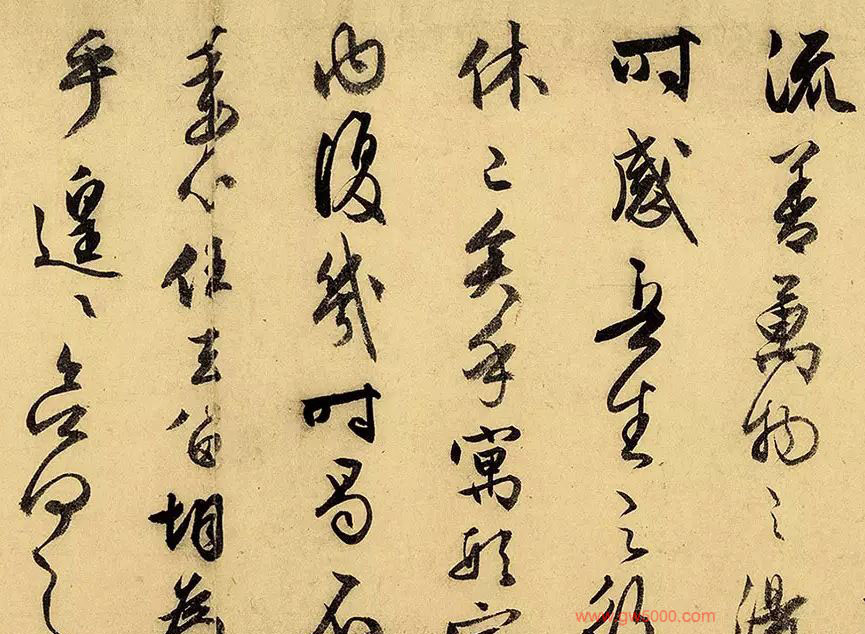 流善萬物之得
時感吾生之行
休已矣乎寓形宇
內復幾時曷不
委心任去留胡為
乎遑〻欲何之
www.gw5000.com